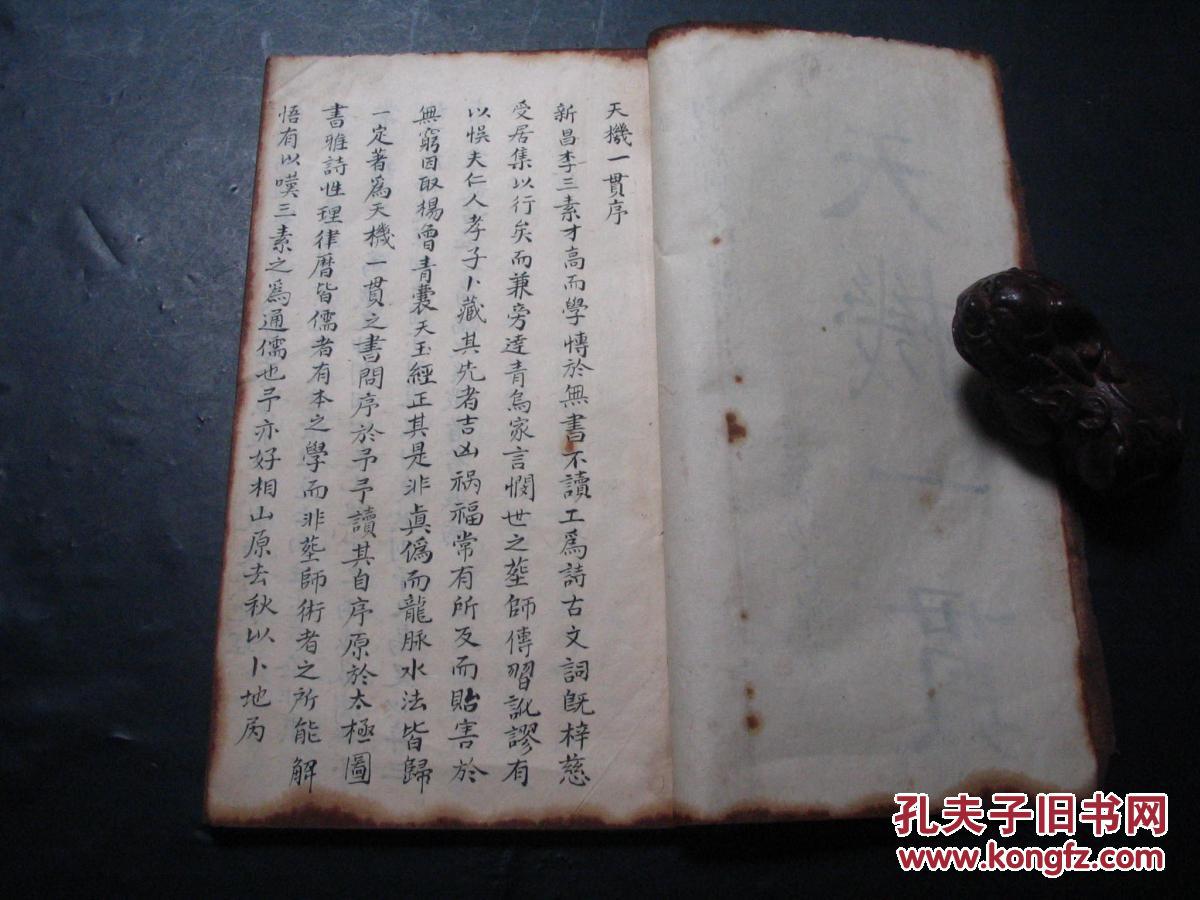 天機一貫序
新昌李三素才高而學愽於無書不讀工爲詩古文詞旣梓慈
受居集以行矣而兼旁達青烏家言憫世之塟師傳習訛謬有
以悮夫仁人孝子卜藏其先者吉凶祸福常有所及而貽害於
無窮因取楊曾青囊天玉經正其是非眞僞而龍脉水法皆歸
一定著爲天機一貫之書問序於予予讀其自序原於太極圖
書雅詩性理律曆皆儒者有本之學而非塟師術者之所能解
悟有以嘆三素之爲通儒也予亦好相山原去秋以卜地為
天機一貫
孔夫子旧书网
www.kongfz.com